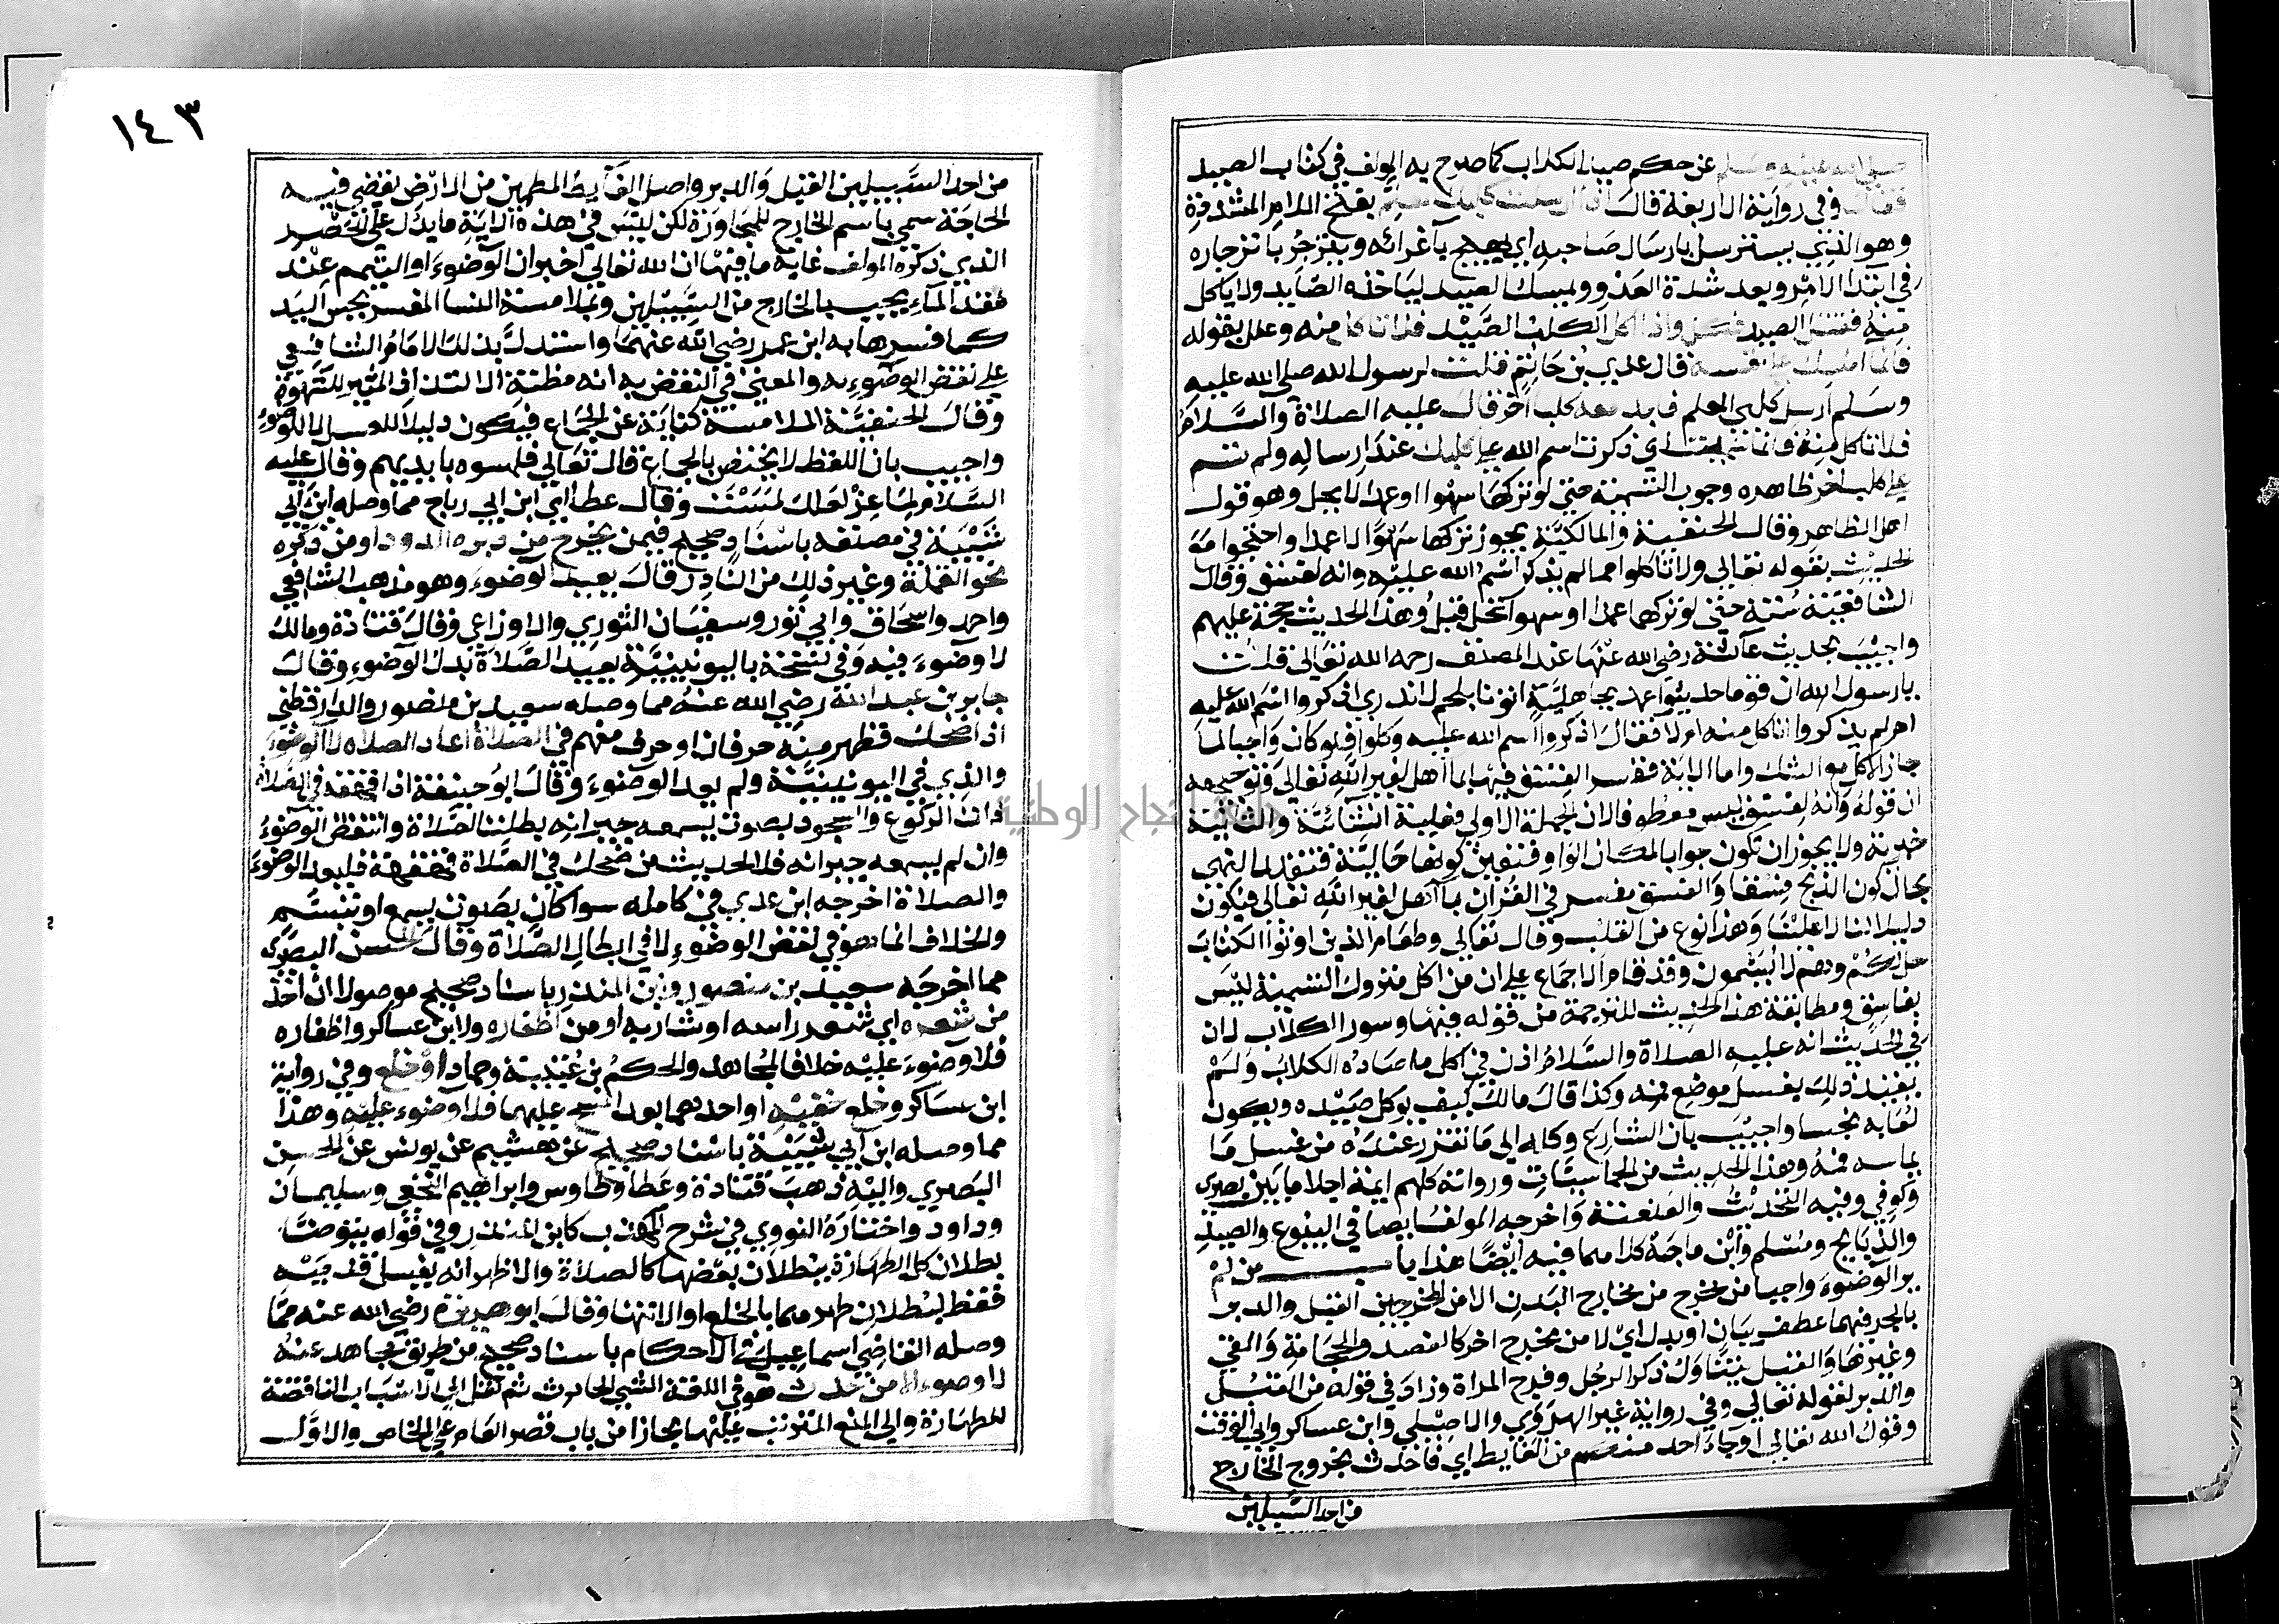 صلى الله عليه وسلم عن حكم صيد الكلاب كما صرح به المولف في كتاب الصيد
فقال وفي رواية الاربعة قال اذا ارسلت كلبك المعلم بفتح اللام المشددة
وهو الذي يسترسل بارسال صاحبه اي يهيج باغرائه وينزجر بانزجاره
في ابتدا الامر وبعد شدة العدو ويمسك الصيد ليأخذه الصايد ولا ياكل
منه فقتل الصيد فكل واذا اكل الكلب الصيد فلا تاكل منه وعلل بقوله
فانما امسك على نفسه قال عدي بن حاتم قلت لرسول الله صلى الله عليه
وسلم ارسل كلبي المعلم فاجد معه كلبا اخر قال عليه الصلاة والسلام
فلا تاكل منه فانما سميت اي ذكرت اسم الله على كلبك عند ارساله ولم تسم
على كلب اخر ظاهره وجوب التسمية حتى لو تركها سهوا او عمدا لا يحل وهو قول
اهل الظاهر وقال الحنفية والمالكية يجوز تركها سهوا لا عمدا واحتجوا مع
الحديث بقوله تعالى ولا تاكلوا مما لم يذكر اسم الله عليه وانه لفسق وقال
الشافعية سنة حتى لو تركها عمدا او سهوا تحل قيل وهذا الحديث حجة عليهم
واجيب بحديث عائشة رضي الله عنها عند المصنف رحمه الله تعالى قلت
يا رسول الله ان قوما حديثوا عهد بجاهلية اتونا بلحم لا ندري اذكروا اسم الله عليه
ام لم يذكروا اناكل منه ام لا فقال اذكروا اسم الله عليه وكلوا فلو كان واجبا لما
جاز الاكل مع الشك واما الاية ففسر الفسق فيها بما اهل لغير الله تعالى وتوجيهه
ان قوله وانه لفسق ليس معطوفا لان الجملة الاولى فعلية انشائية والثانية
خبرية ولا يجوز ان تكون جوابا لمكان الواو فتعين كونها حالية فتقيد النهي
بحال كون الذبح فسقا والفسق مفسر في القران بما اهل لغير الله تعالى فيكون
دليلا لنا لا علينا وهذا نوع من القلب وقال تعالى وطعام الذين اوتوا الكتاب
حل لكم وهم لا يسمون وقد قام الاجماع على ان من اكل متروك التسمية ليس
بفاسق ومطابقة هذا الحديث للترجمة من قوله فيها وسور الكلاب لان
في الحديث انه عليه الصلاة والسلام اذن في اكل ما صاده الكلاب ولم
يقيد ذلك بغسل موضع فمه وكذا قال مالك كيف يوكل صيده ويكون
لعابه نجسا واجيب بان الشارع وكله الى ما تقرر عنده من غسل ما
يماسه فمه وهذا الحديث من الخماسيات ورواته كلهم ايمة اجلا ما بين بصري
وكوفي وفيه التحديث والعنعنة واخرجه المولف ايضا في البيوع والصيد
والذبايح ومسلم وابن ماجة كلاهما فيه ايضا هذا باب من لم
ير الوضوء واجبا من مخرج من مخارج البدن الا من المخرجين القبل والدبر
بالجر فيهما عطف بيان او بدل اي لا من مخرج اخر كالفصد والحجامة والقي
وغيرها والقبل يتناول ذكر الرجل وفرج المراة وزاد في قوله من القبل
والدبر لقوله تعالى وفي رواية غير الهروي والاصيلي وابن عساكر وابي الوقت
وقول الله تعالى او جاء احد منكم من الغايط اي فاحدث بخروج الخارج
من احد السبيلين
١٤٣
من احد السبيلين القبل والدبر واصل الغايط المطمين من الارض تقضي فيه
الحاجة سمي باسم الخارج للمجاورة لكن ليس في هذه الاية ما يدل على الحصر
الذي ذكره المولف غاية ما فيها ان الله تعالى اخبر ان الوضوء او التيمم عند
فقد الماء يجب بالخارج من السبيلين وبملامسة النسا المفسر بجس اليد
كما فسرها به ابن عمر رضي الله عنهما واستدل بذلك الامام الشافعي
على نقض الوضوء به والمعنى في النقض به انه مظنة الالتذاذ المثير للشهوة
وقال الحنفية الملامسة كناية عن الجماع فيكون دليلا للغسل لا للوضوء
واجيب بان اللفظ لا يختص بالجماع قال تعالى فلمسوه بايديهم وقال عليه
السلام لماعز لعلك لمست وقال عطا اي ابن ابي رباح مما وصله ابن ابي
شيبة في مصنفه باسناد صحيح فيمن يخرج من دبره الدود او من ذكره
نحو القملة وغير ذلك من النادر قال يعيد الوضوء وهو مذهب الشافعي
واحمد واسحاق وابي ثور وسفيان الثوري والاوزاعي وقال قتادة ومالك
لا وضوء فيه وفي نسخة باليونينية يعيد الصلاة بدل الوضوء وقال
جابر بن عبد الله رضي الله عنه مما وصله سعيد بن منصور والدارقطني
اذا ضحك فظهر منه حرفان او حرف مفهم في الصلاة اعاد الصلاة لا الوضوء
والذي في اليونينية ولم يعد الوضوء وقال ابو حنيفة اذا قهقه في الصلاة
ذات الركوع والسجود بصوت يسمعه جيرانه بطلت الصلاة وانتقض الوضوء
وان لم يسمعه جيرانه فلا لحديث من ضحك في الصلاة قهقهة فليعد الوضوء
والصلاة اخرجه ابن عدي في كامله سوا كان بصوت يسمع او تبسم
والخلاف انما هو في نقض الوضوء لا في ابطال الصلاة وقال الحسن البصري
مما اخرجه سعيد بن منصور وابن المنذر باسناد صحيح موصولا ان اخذ
من شعره اي شعر راسه او شاربه او من اظفاره ولابن عساكر واظفاره
فلا وضوء عليه خلافا لمجاهد والحكم بن عتيبة وحماد او خلع وفي رواية
ابن عساكر وخلع خفيه او احدهما بعد المسح عليهما فلا وضوء عليه وهذا
مما وصله ابن ابي شيبة باسناد صحيح عن هشيم عن يونس عن الحسن
البصري واليه ذهب قتادة وعطا وطاوس وابراهيم النخعي وسليمان
وداود واختاره النووي في شرح المهذب كابن المنذر وفي قوله يتوضا
بطلان كل الطهارة ببطلان بعضها كالصلاة والاظهر انه يغسل قدميه
فقط لبطلان طهرهما بالخلع او الانتها وقال ابو هريرة رضي الله عنه مما
وصله القاضي اسماعيل في الاحكام باسناد صحيح من طريق مجاهد عنه
لا وضوء الا من حدث هو في اللغة الشي الحادث ثم نقل الى الاسباب الناقضة
للطهارة والى المنع المترتب عليها مجازا من باب قصر العام على الخاص والاول
جامعة النجاح الوطنية